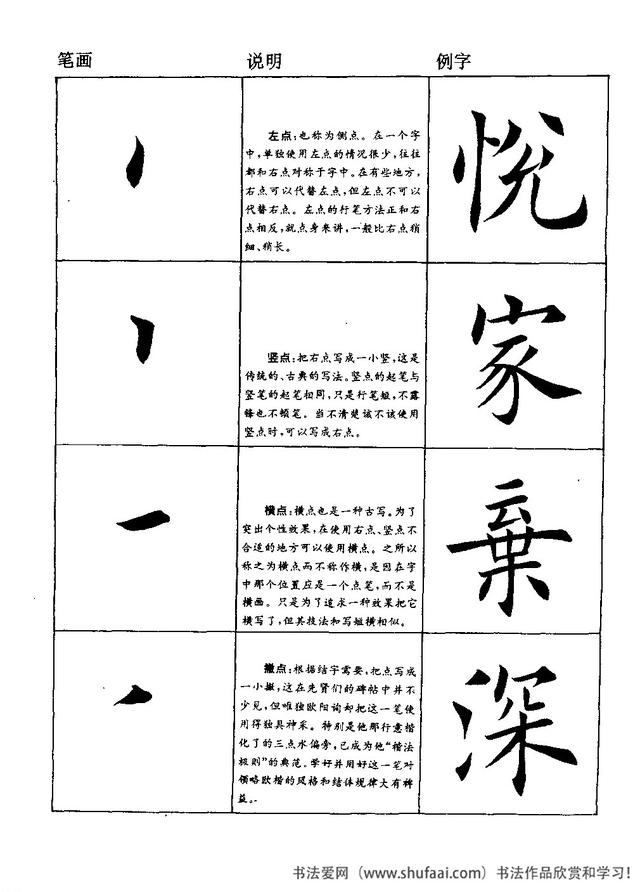 笔画 说明 例字
左点:也称为侧点。在一个字
中,单独使用左点的情况很少,往往
都和右点对称于字中。在有些地方,
右点可以代替左点,但左点不可以
代替右点。左点的行笔方法正和右
点相反,就点身来讲,一般比右点稍
细、稍长。
悦
竖点:把右点写成一小竖,这是
传统的、古典的写法。竖点的起笔与
竖笔的起笔相同,只是行笔短,不露
锋也不顿笔。当不清楚该不该使用
竖点时,可以写成右点。
家
横点:横点也是一种古写。为了
突出个性效果,在使用右点、竖点不
合适的地方可以使用横点。之所以
称之为横点而不称作横,是因在字
中那个位置应是一个点笔,而不是
横画。只是为了追求一种效果把它
横写了,但其技法和写短横相似。
棄
撇点:根据结字需要,把点写成
一小撇,这在先贤们的碑帖中并不
少见,但唯独欧阳询却把这一笔使
用得独具神采。特别是他那行意楷
化了的三点水偏旁,已成为他“楷法
极则”的典范。学好并用好这一笔对
领略欧楷的风格和结体规律大有裨
益。
深
书法爱网(www.shufaai.com)书法作品欣赏和学习!